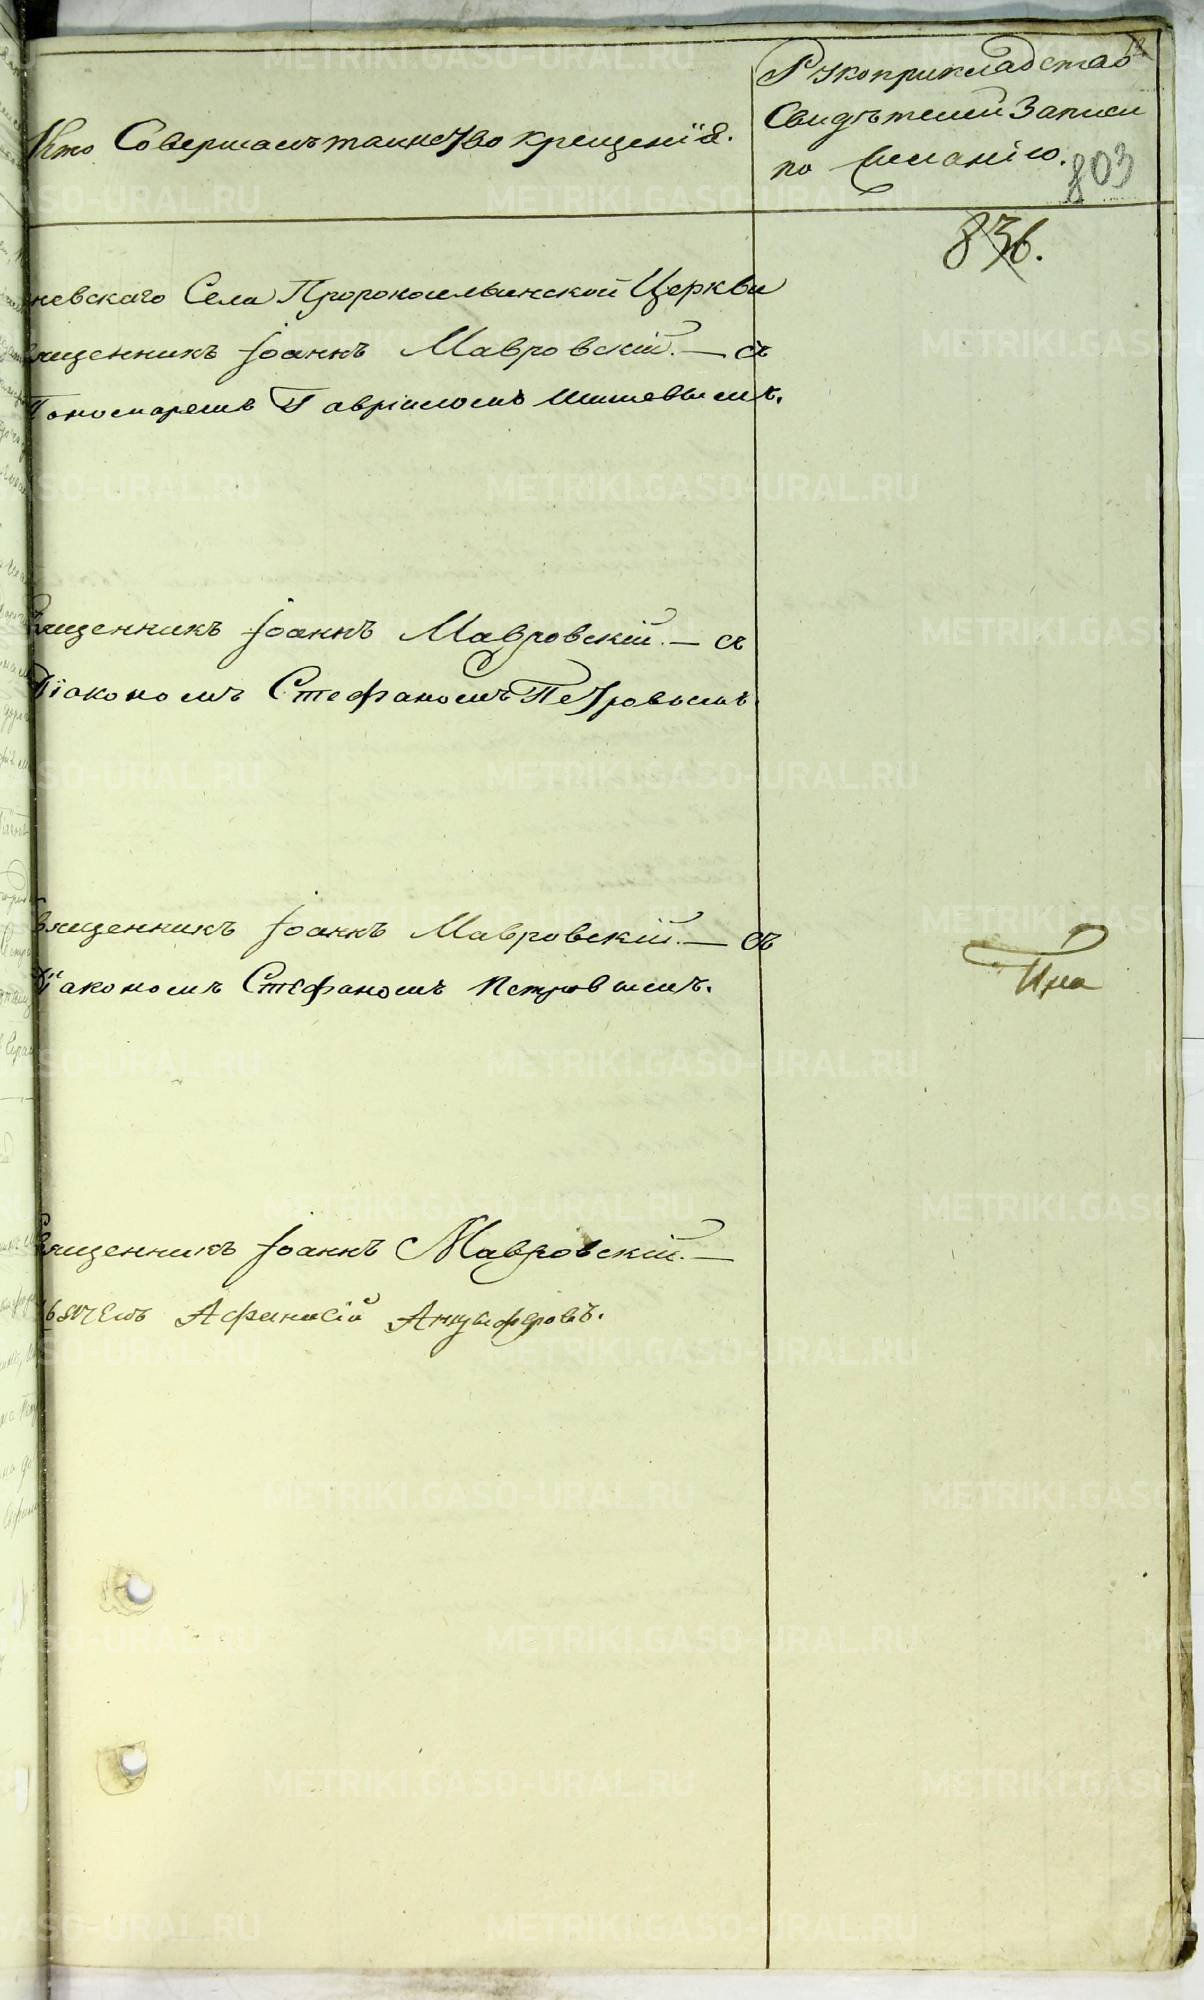 Кто Совершалъ таинство крещенїя.
Рукоприкладство
Свидѣтелей Записи
по желанію.
803
836.
невскаго Села Пророкоильинской Церкви
священникъ Іоаннъ Мавровскій. — съ
Пономаремъ Гавріиломъ Шишевымъ.
священникъ Іоаннъ Мавровскій. — съ
Дїакономъ Стефаномъ Петровымъ.
священникъ Іоаннъ Мавровскій. — съ
Дїакономъ Стефаномъ Петровымъ.
священникъ Іоаннъ Мавровскій. —
дьячемъ Афанасій Анцыферовъ.
METRIKI.GASO-URAL.RU